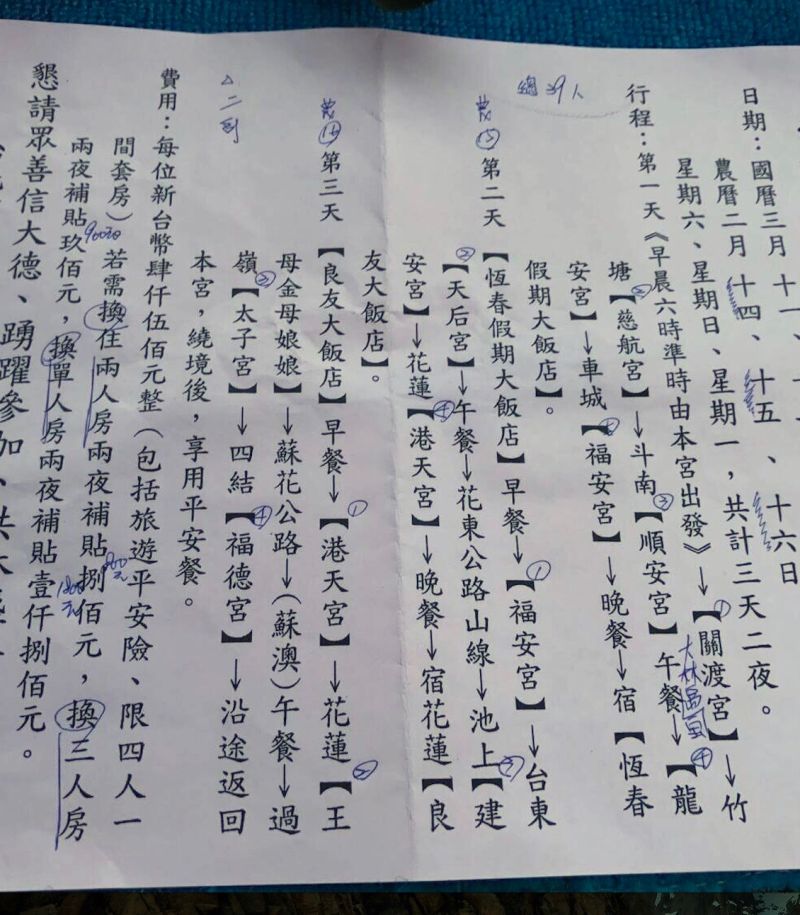 日期：國曆三月十一、
農曆二月十四、十五、十六日
星期六、星期日、星期一，共計三天二夜。
行程：第一天《早晨六時準時由本宮出發》→①【關渡宮】→竹
塘②【慈航宮】→斗南③【順安宮】午餐→④【龍
安宮】→車城【福安宮】→晚餐→宿【恆春
假期大飯店】。
總39人
農⑮
第二天【恆春假期大飯店】早餐→①【福安宮】→台東
②【天后宮】→午餐→花東公路山線→池上③【建
安宮】→花蓮④【港天宮】→晚餐→宿花蓮【良
友大飯店】。
農⑯
第三天【良友大飯店】早餐→①【港天宮】→花蓮②【王
母金母娘娘】→蘇花公路→(蘇澳)午餐→過
嶺③【太子宮】→四結④【福德宮】→沿途返回
本宮，繞境後，享用平安餐。
費用：每位新台幣肆仟伍佰元整（包括旅遊平安險、限四人一
間套房）若需換住兩人房兩夜補貼捌佰元，換三人房
800元
兩夜補貼玖佰元，換單人房兩夜補貼壹仟捌佰元。
900元
1800元
懇請眾善信大德、踴躍參加、共